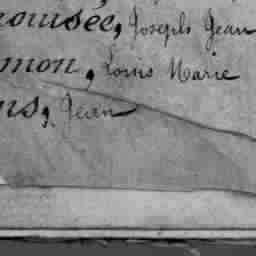 rousée, Joseph Jean
mon, Louis Marie
ns, Jean